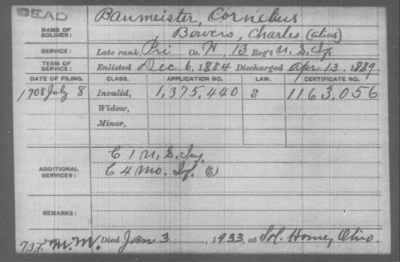 DEAD
Baumeister, Cornelius
NAME OF SOLDIER: Bowers, Charles (alias)
SERVICE: Late rank, Pri Co. H, 13 Reg't U.S. Inf.
TERM OF SERVICE: Enlisted Dec 6, 1884 Discharged Apr. 13, 1889
DATE OF FILING. CLASS. APPLICATION NO. LAW. CERTIFICATE NO.
1908 July 8 Invalid, 1,375,440 S 1163,056
Widow,
Minor,
ADDITIONAL SERVICES: C 1 U.S. Inf.
C 4 Mo. Inf.
REMARKS:
M.M. Died Jan 3 1933, at Sol. Home, Ohio.